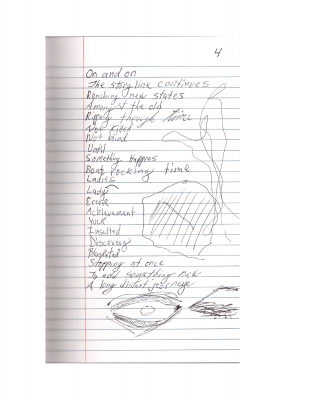 4
On and on
The storyline continues
Reaching new states
Amongst the old
through time
Not Killed
Not blind
Until
Something Happens
Boat rocking time
Ladies
Lady
Erode
Achievement
Yuck
Insulted
Discovery
Stopping at once
To add something new
A long distant journeye